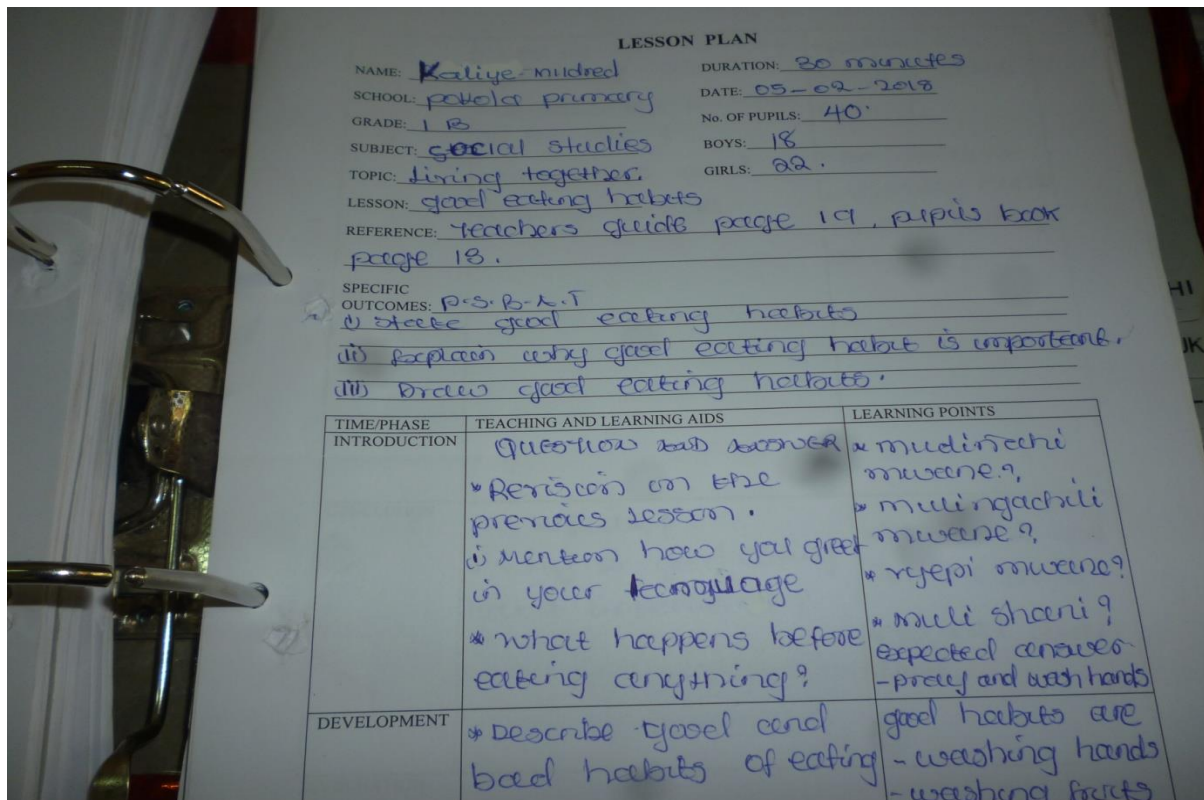 LESSON PLAN
NAME: Kaliye mildred DURATION: 30 minutes
SCHOOL: primary DATE: 05-02-2018
GRADE: 1 B No. OF PUPILS: 40
SUBJECT: social studies BOYS: 18
TOPIC: Living together. GIRLS: 22.
LESSON: good eating habits
REFERENCE: teachers guide page 19, pupils book
page 18.
SPECIFIC
OUTCOMES: P.S.B.A.T
(i) state good eating habits
(ii) Explain why good eating habit is important.
(iii) Draw good eating habits.
TIME/PHASE TEACHING AND LEARNING AIDS LEARNING POINTS
INTRODUCTION
Question and answer
* Revision on the
previous Lesson.
(i) Mention how you greet
in your language
* what happens before
eating anything?
* mudintechi
mwane?
* mulingachili
mwane?
* ryepi mwane?
* muli shani?
expected answer
- pray and wash hands
DEVELOPMENT
* Describe good and
bad habits of eating
good habits are
- washing hands
- washing fruits
HI
JK